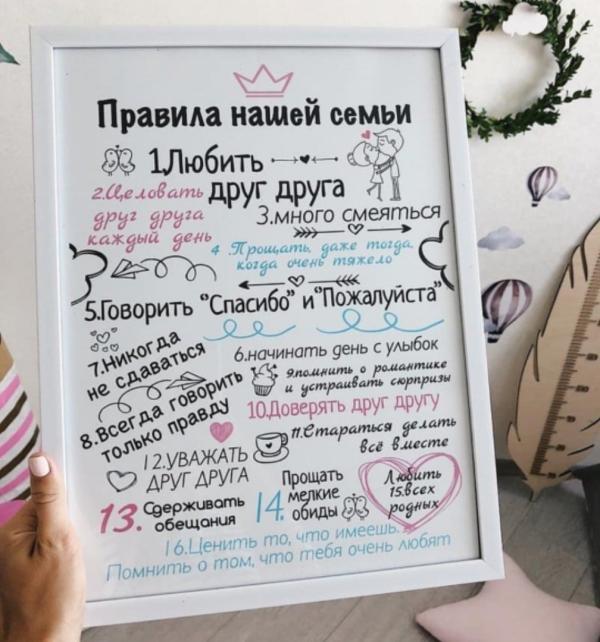 Правила нашей семьи
1Любить
друг друга
2.Целовать
друг друга
каждый день
3.много смеяться
4 .Прощать, даже тогда,
когда очень тяжело
5.Говорить "Спасибо" и "Пожалуйста"
6.начинать день с улыбок
7.Никогда
не сдаваться
8.Всегда говорить
только правду
9.помнить о романтике
и устраивать сюрпризы
10.Доверять друг другу
11.Стараться делать
всё вместе
12.УВАЖАТЬ
ДРУГ ДРУГА
13. Сдерживать
обещания
14. Прощать
мелкие
обиды
Любить
15.всех
родных
16.Ценить то, что имеешь.
Помнить о том, что тебя очень любят